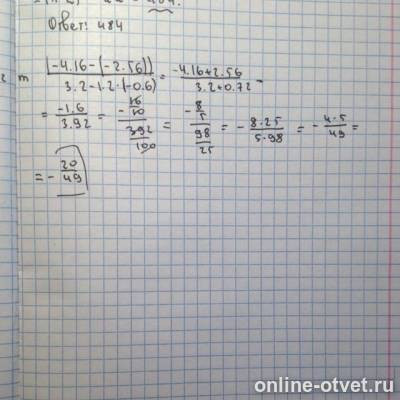 Ответ: 484
(-4.16-(-2.56)) / 3.2-1.2·(-0.6) = -4.16+2.56 / 3.2+0.72 =
= -1.6 / 3.92 = - 16/10 / 392/100 = - 8/5 / 98/25 = - 8·25 / 5·98 = - 4·5 / 49 =
= - 20 / 49
online-otvet.ru